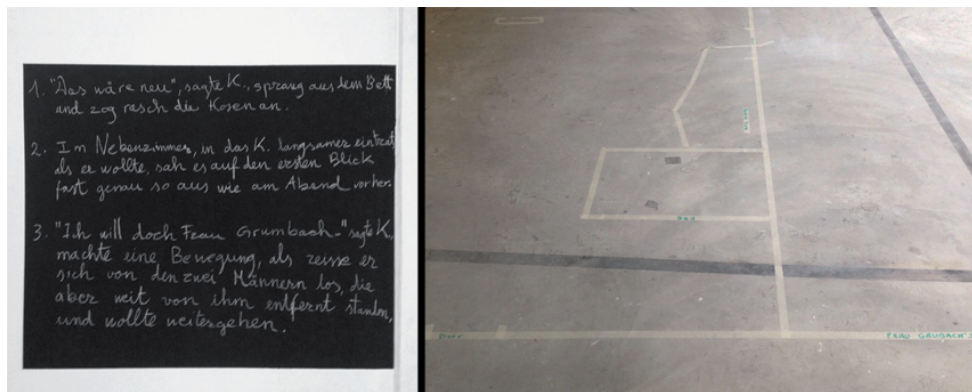 1. "Das wäre neu", sagte K., sprang aus dem Bett
und zog rasch die Hosen an.
2. Im Nebenzimmer, in das K. langsamer eintrat
als er wollte, sah es auf den ersten Blick
fast genau so aus wie am Abend vorher.
3. "Ich will doch Frau Grumbach-" sagte K,
machte eine Bewegung, als reisse er
sich von den zwei Männern los, die
aber weit von ihm entfernt standen,
und wollte weitergehen.
BED
DOOR
FRAU GRUBACH'S